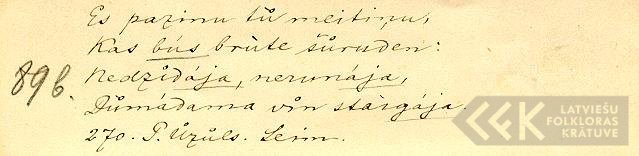 Es pazinu tů meitiņu,
Kas bús brùte šůruden:
896.
Nedzìdája, nerunája,
Důmádama vìn stàigája.
270. P. Ùzůls. Leim.
LATVIEŠU
FOLKLORAS
KRĀTUVE